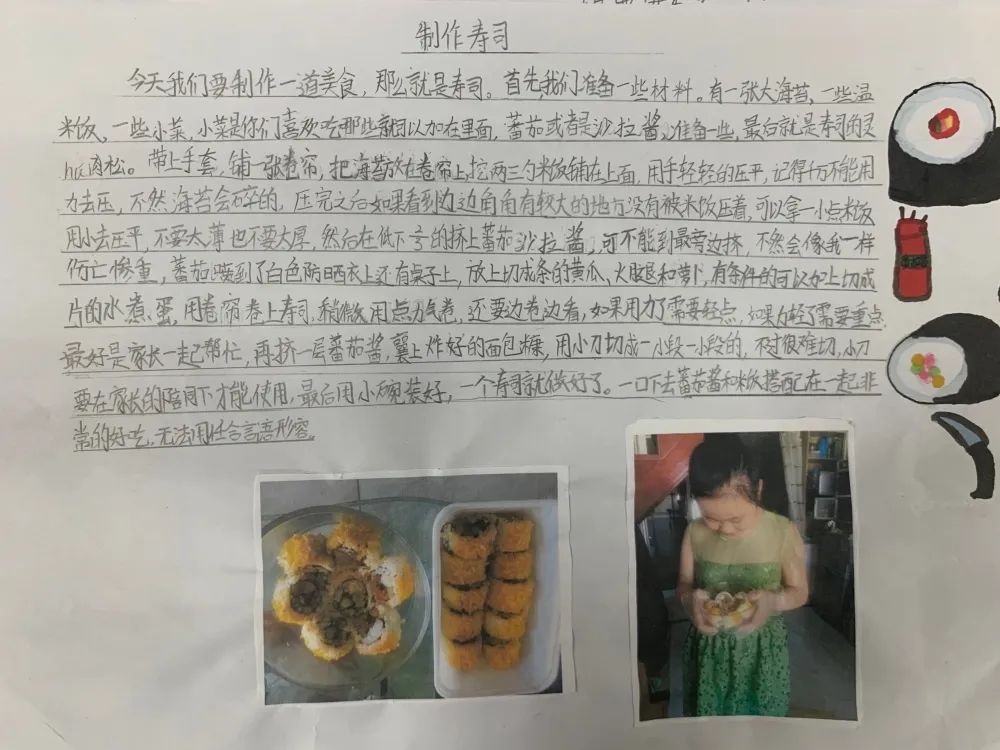 制作寿司
今天我们要制作一道美食，那么就是寿司。首先我们准备一些材料。有一张大海苔，一些温
米饭、一些小菜，小菜是你们喜欢吃那些就可以加在里面，蕃茄或者是沙拉酱准备一些，最后就是寿司的灵
hún肉松。带上手套，铺一张卷帘，把海苔放在卷帘上，挖两三勺米饭铺在上面，用手轻轻的压平，记得千万不能用
力去压，不然海苔会碎的，压完之后如果看到边边角角有较大的地方没有被米饭压着，可以拿一小点米饭
用小去压平，不要太薄也不要太厚，然后在低下的挤上蕃茄沙拉酱，可不能到最旁边挤，不然会像我一样
伤亡惨重，蕃茄喷到了白色防晒衣上还有桌子上，放上切成条的黄瓜、火腿和萝卜，有条件的可以加上切成
片的水煮蛋，用卷帘卷上寿司，稍微用点力气卷，还要边卷边看，如果用力了需要轻点，如果力轻了需要重点，
最好是家长一起帮忙，再挤一层蕃茄酱，裹上炸好的面包糠，用小刀切成一小段一小段的，不过很难切，小刀
要在家长的陪同下才能使用，最后用小碗装好，一个寿司就做好了。一口下去蕃茄酱和米饭搭配在一起非
常的好吃，无法用任合言语形容。